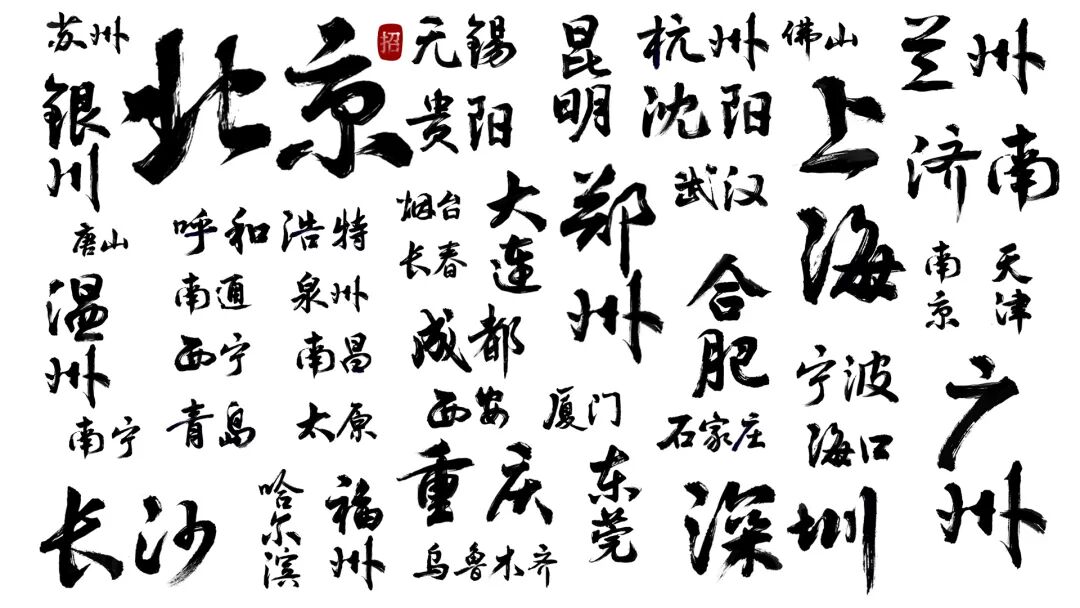 苏州
北京
招
无锡
昆明
杭州
佛山
兰州
银川
贵阳
沈阳
上海
济南
唐山
呼和浩特
烟台
大连
郑州
武汉
长春
南通
泉州
合肥
南京
天津
温州
西宁
南昌
成都
宁波
广州
南宁
青岛
太原
西安
厦门
石家庄
海口
长沙
哈尔滨
福州
重庆
东莞
深圳
乌鲁木齐